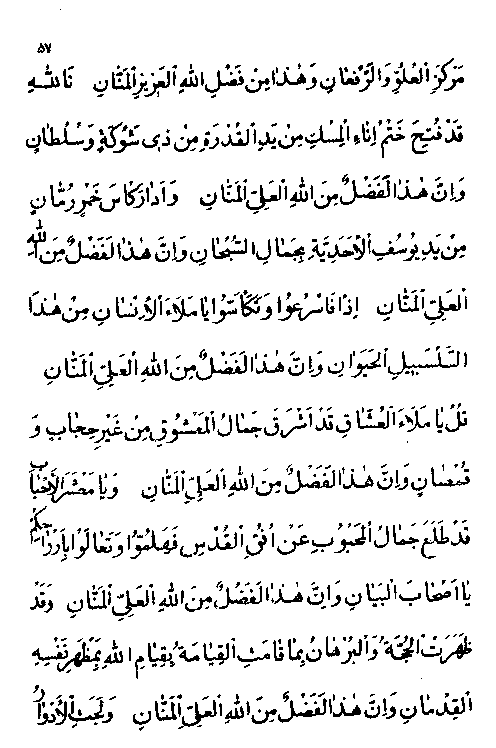 ٥٧
مَرْكَزَ الْعُلُوِّ وَالرَّفْعَانِ وَهٰذَا مِنْ فَضْلِ اللهِ الْعَزِيزِ الْمَنَّانِ تَاللهِ
قَدْ فُتِحَ خَتْمُ اِنَاءِ الْمِسْكِ مِنْ يَدِ الْقُدْرَةِ مِنْ ذِي شَوْكَةٍ وَسُلْطَانٍ
وَاِنَّ هٰذَا لَفَضْلٌ مِنَ اللهِ الْعَلِيِّ الْمَنَّانِ وَاَدَارَ كَاسَ خَمْرِ رُمَّانٍ
مِنْ يَدِ يُوسُفِ الْاَحَدِيَّةِ بِجَمَالِ السُّبْحَانِ وَاِنَّ هٰذَا لَفَضْلٌ مِنَ اللهِ
الْعَلِيِّ الْمَنَّانِ اِذًا فَاسْرَعُوا وَتَكَأَّسُوا يَا مَلَاءَ الْاِنْسَانِ مِنْ هٰذَا
السَّلْسَبِيلِ الْحَيَوَانِ وَاِنَّ هٰذَا لَفَضْلٌ مِنَ اللهِ الْعَلِيِّ الْمَنَّانِ
قُلْ يَا مَلَاءَ الْعُشَّاقِ قَدْ اَشْرَقَ جَمَالُ الْمَعْشُوقِ مِنْ غَيْرِ حِجَابٍ وَ
قُمْصَانٍ وَاِنَّ هٰذَا لَفَضْلٌ مِنَ اللهِ الْعَلِيِّ الْمَنَّانِ وَيَا مَعْشَرَ الْاَحْبَابِ
قَدْ طَلَعَ جَمَالُ الْمَحْبُوبِ عَنْ اُفُقِ الْقُدْسِ فَهَلُمُّوا وَتَعَالَوْا بِاَرْوَاحِكُمْ
يَا اَصْحَابَ الْبَيَانِ وَاِنَّ هٰذَا لَفَضْلٌ مِنَ اللهِ الْعَلِيِّ الْمَنَّانِ وَقَدْ
ظَهَرَتْ الْحُجَّةُ وَالْبُرْهَانُ بِمَا قَامَتِ الْقِيَامَةُ بِقِيَامِ اللهِ بِمَظْهَرِ نَفْسِهِ
الْقِدْمَانِ وَاِنَّ هٰذَا لَفَضْلٌ مِنَ اللهِ الْعَلِيِّ الْمَنَّانِ وَلَجَّتِ الْاَدْوَارُ